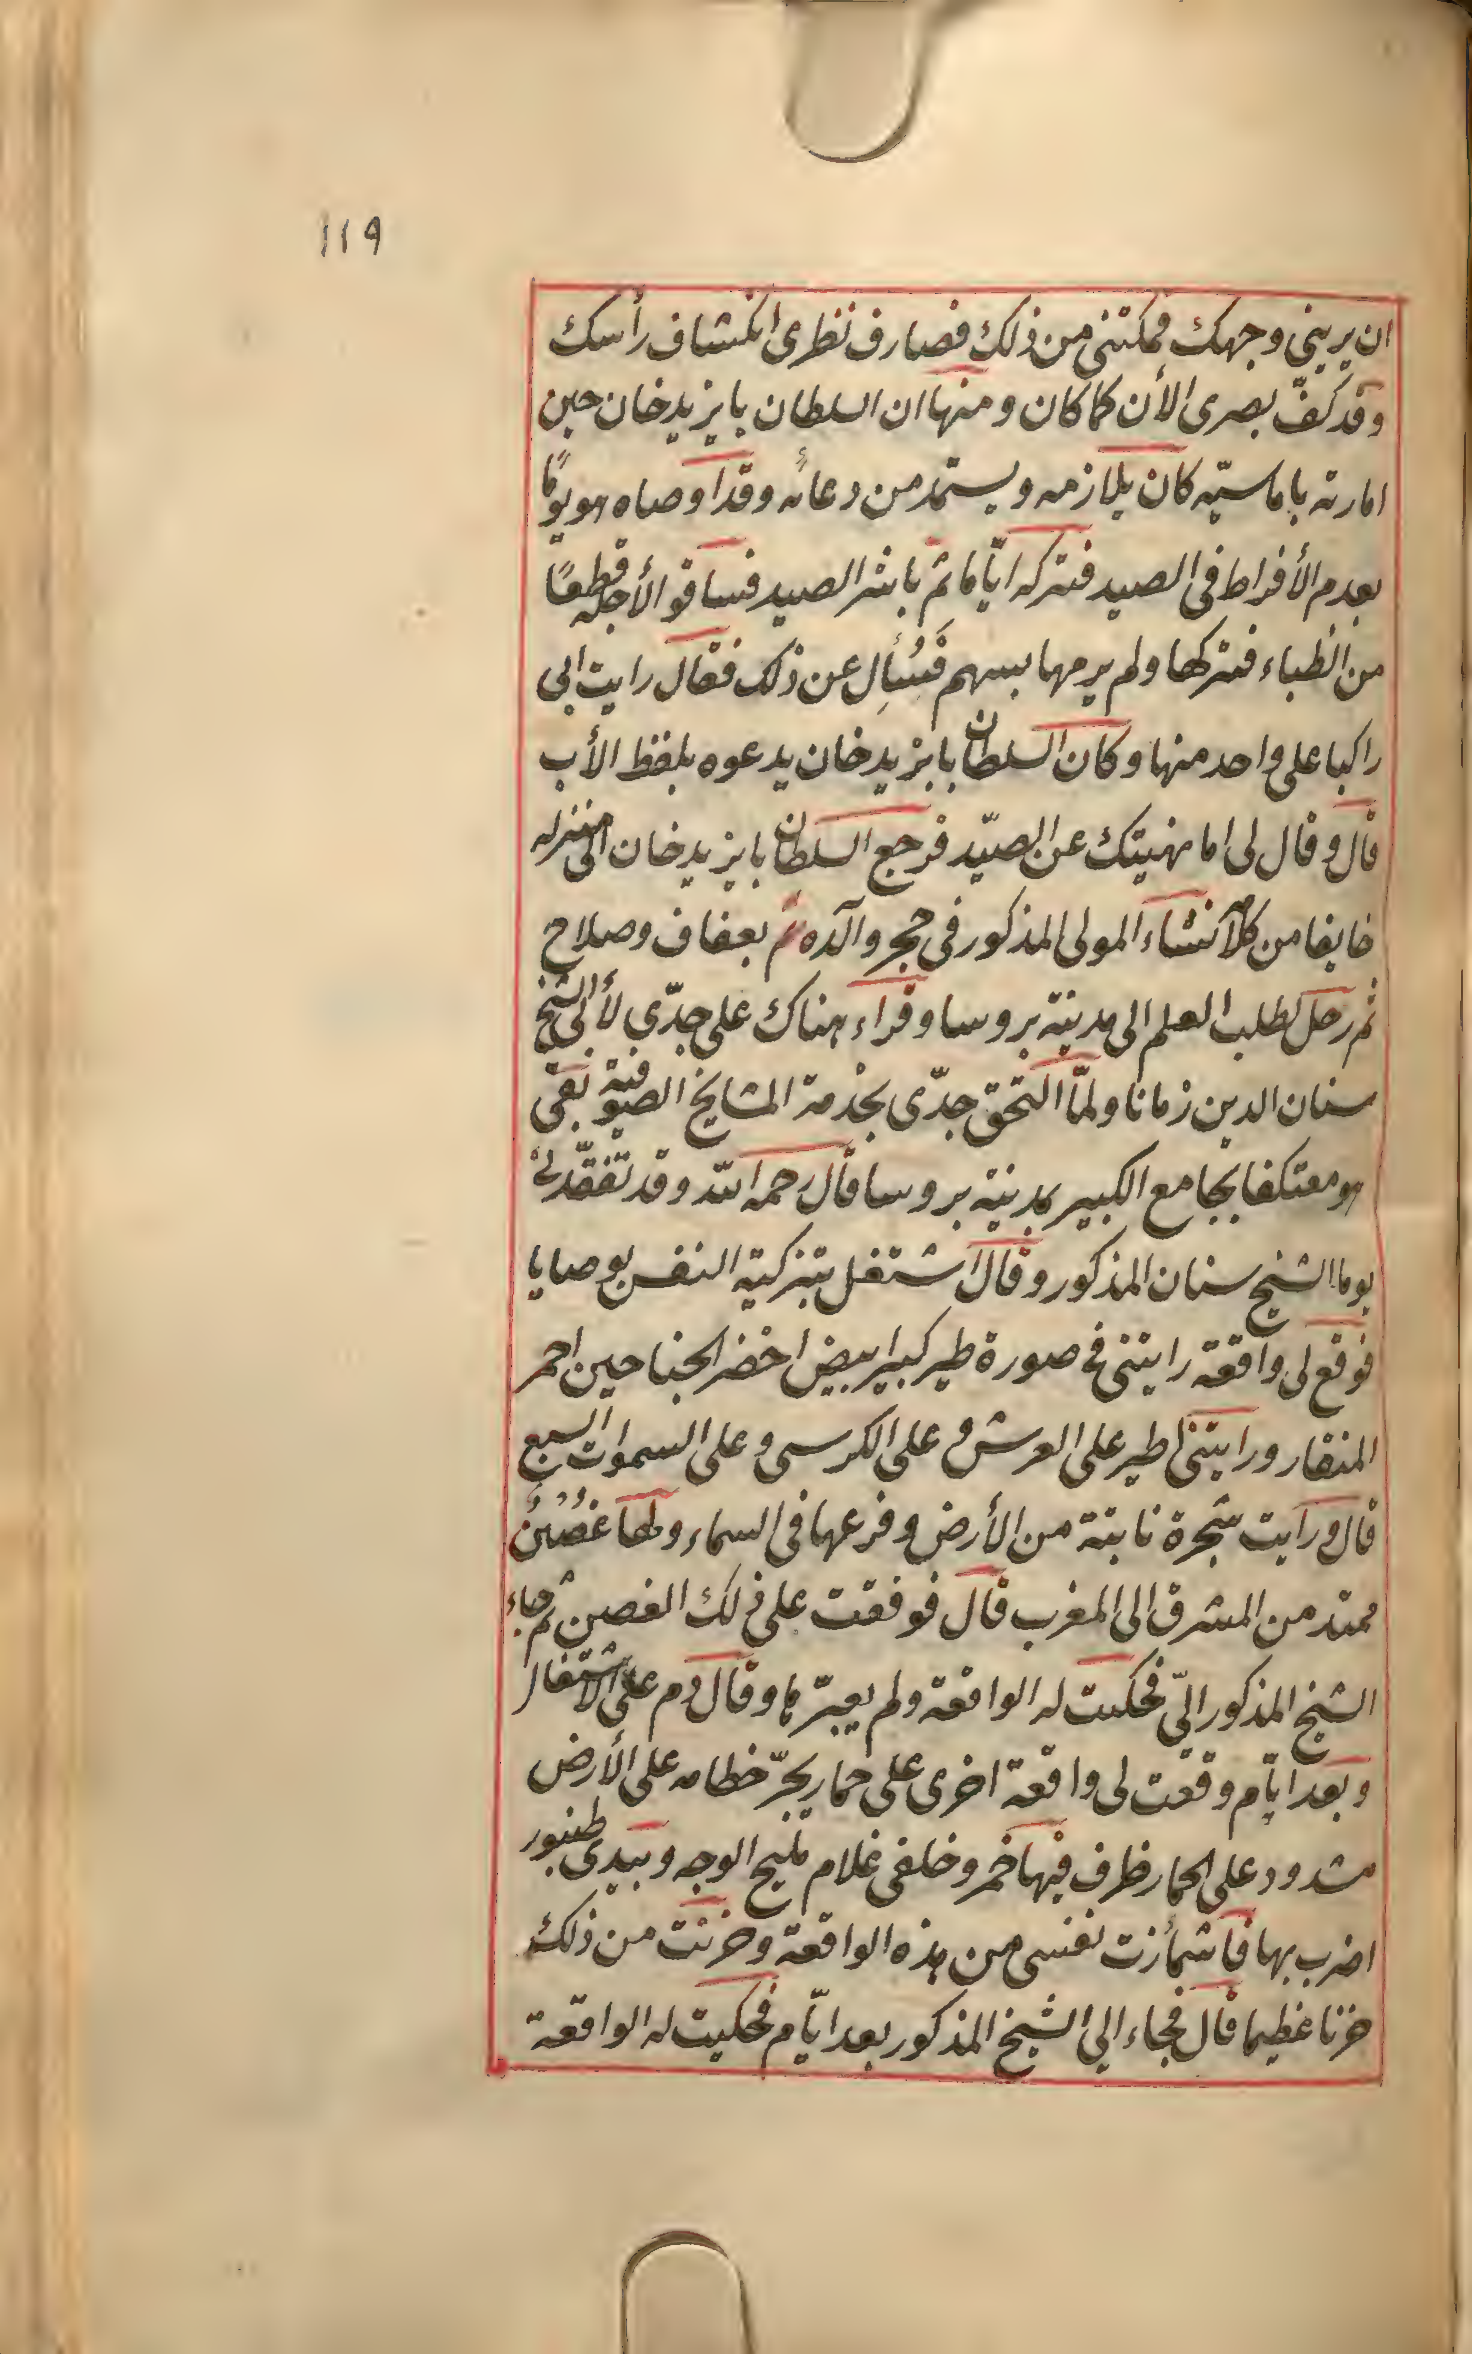 119
ان يرينى وجهك فمكننى من ذلك فصادف نظرى انكشاف رأسك
وقد كفّ بصرى الأن كما كان ومنها ان السلطان بايزيد خان حين
امارته باماسيّه كان يلازمه ويستمد من دعائه وقد اوصاه هو يومًا
بعدم الأفراط فى الصيد فتركه ايّاما ثم باشر الصيد فساقوا لأجله قطعًا
من الظباء فتركها ولم يرمها بسهم فَسُأِل عن ذلك فقال رايت ابى
راكبا على واحد منها وكان السلطان بايزيد خان يدعوه بلفظ الأب
قال وقال لى اما نهيتك عن الصيّد فرجع السلطان بايزيد خان الى منزله
خايفا من كلامه نشاء المولى المذكور فى حجر والده ثم بعفاف وصلاح
ثم رحل لطلب العلم الى مدينة بروسا وقراء هناك على جدّى لأبى الشيخ
سنان الدين زمانا ولمّا التحق جدّى بخدمة المشايخ الصوفية بقى
هو معتكفا بجامع الكبير بمدينة بروسا قال رحمه الله وقد تفقّدنى
يوما الشيخ سنان المذكور وقال اشتغل بتزكية النفس بوصايا
فوقع لى واقعة رايتنى فى صورة طير كبير ابيض اخضر الجناحين احمر
المنقار ورايتنى اطير على العرش و على الكرسى وعلى السموات السبع
قال ورايت شجرة نابتة من الأرض وفرعها فى السماء ولها غُصُنٌ
ممتد من المشرق الى المغرب قال فوقعت على ذلك الغصن ثم جاء
الشيخ المذكور الىّ فحكيت له الواقعة ولم يعبّرها وقال دم على الاشتغال
وبعد ايّام وقعت لى واقعة اخرى على حمار يجرّ خطامه على الأرض
مشدود على الحمار ظرف فيها خمر وخلفى غلام مليح الوجه وبيدى طنبور
اضرب بها فاشمأزت نفسى من هذه الواقعة وحزنت من ذلك
حزنا عظيما قال فجاء الى الشيخ المذكور بعد ايّام فحكيت له الواقعة